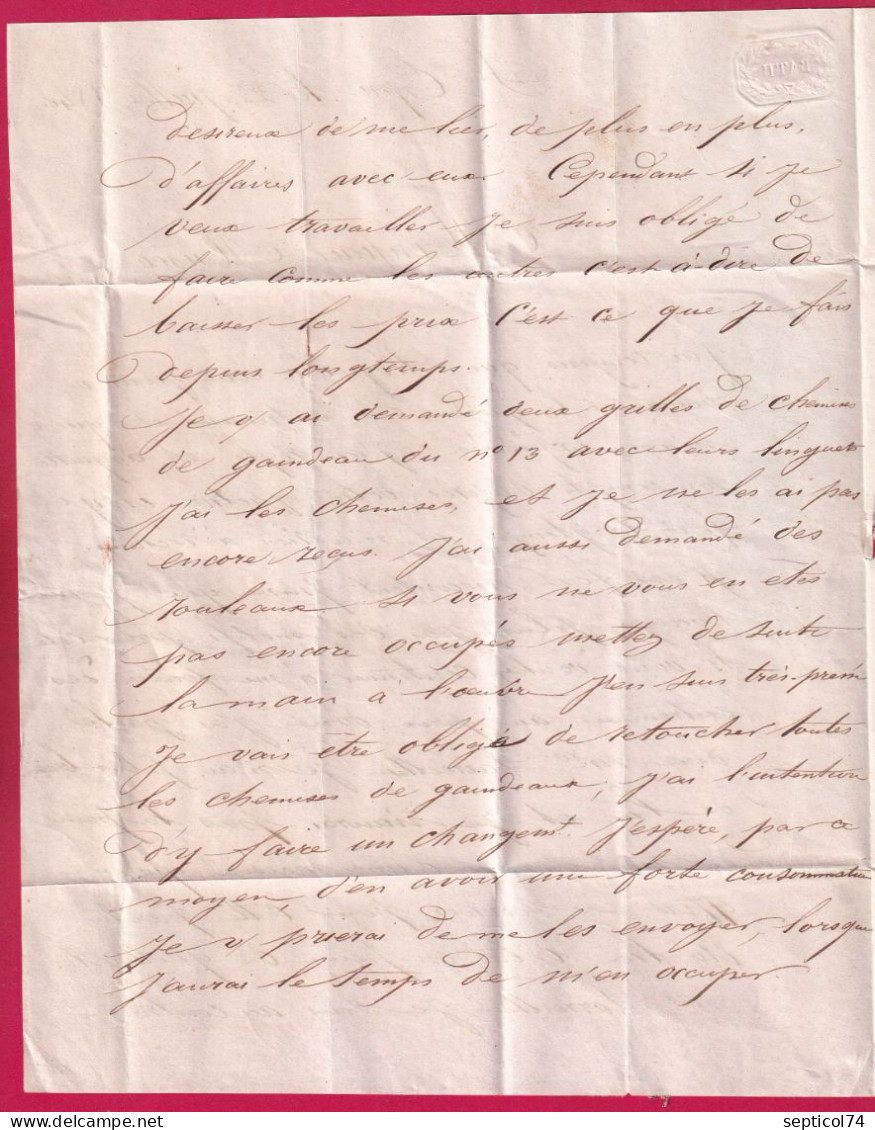 desireux de me lier, de plus en plus,
d'affaires avec eux. Cependant si je
veux travailler je suis obligé de
faire comme les autres c'est-à-dire de
baisser les prix c'est ce que je fais
depuis longtemps.
Je v/ ai demandé deux grilles de chemises
de gaindeau du n° 13 avec leurs linguets
J'ai les chemises, et je ne les ai pas
encore reçus. J'ai aussi demandé des
rouleaux si vous ne vous en etes
pas encore occupés mettez de suite
la main à l'oeuvre J'en suis très-
Je vais être obligé de retoucher toutes
les chemises de gaindeaux, j'ai l'intention
d'y faire un changemt. J'espère, par ce
moyen, d'en avoir une forte consommation
Je v/ prierai de me les envoyer, lorsque
j'aurai le temps de m'en occuper.
septicol74